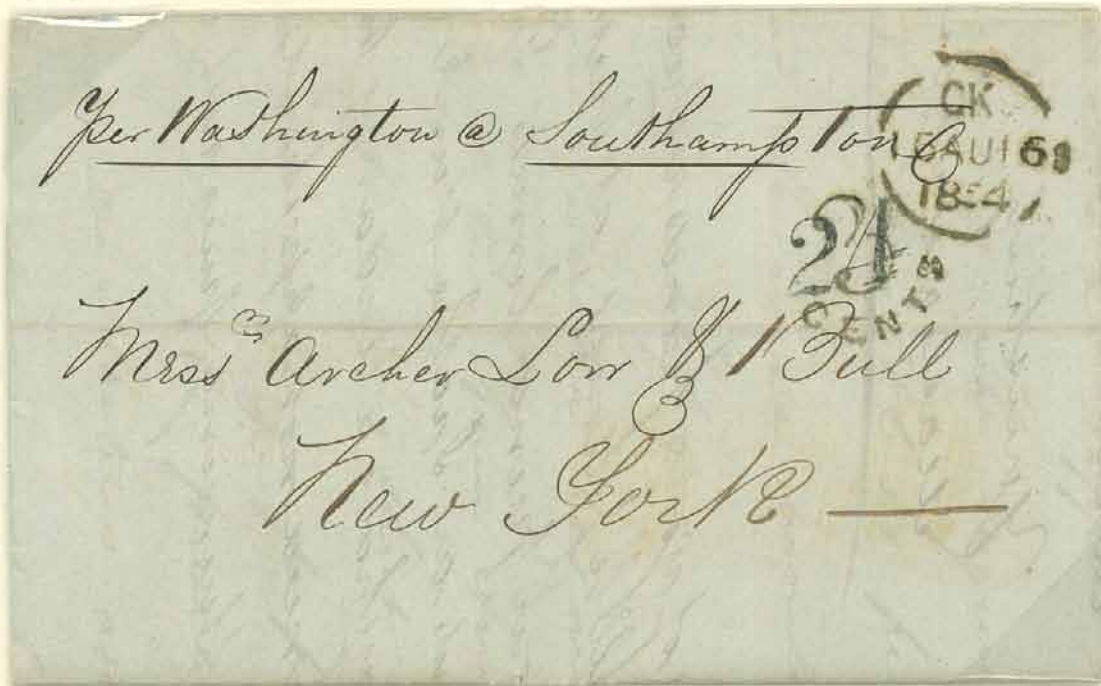 per Washington @ Southampton
CK
AU16
1854
24
CENTS
Mess<sup>rs</sup> Archer & Bull
New York